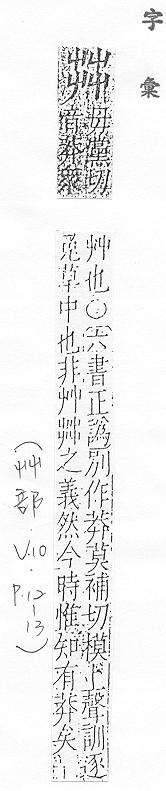 字彙
茻
毋黨切
音莽衆
艸也○六書正譌別作莽莫補切模上聲訓逐
兎草中也非茻之義然今時惟知有莽矣
(艸部.V.10.P.12-13)